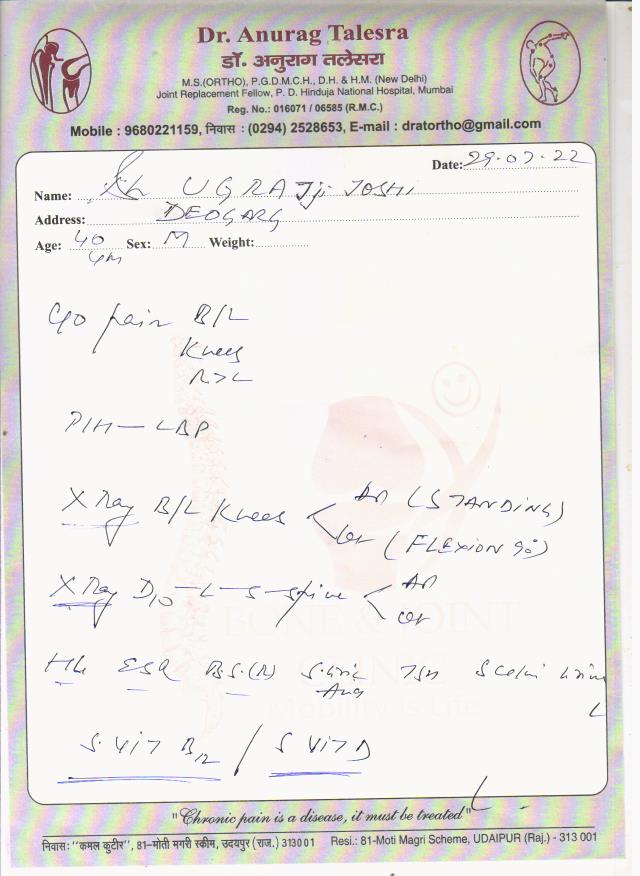 Dr. Anurag Talesra
डॉ. अनुराग तलेसरा
M.S.(ORTHO), P.G.D.M.C.H., D.H. & H.M. (New Delhi)
Joint Replacement Fellow, P. D. Hinduja National Hospital, Mumbai
Reg. No.: 016071 / 06585 (R.M.C.)
Mobile : 9680221159, निवास : (0294) 2528653, E-mail : dratortho@gmail.com
Date: 29.07.22
Name: UGRA Jiji JOSHI
Address: DEOGARG
Age: 40 Sex: M Weight:
C/o pain B/L
Knees
R>L
P/H — LBP
X Ray B/L Knees AP (STANDING)
Lat (FLEXION 90)
X Ray D10 - L - S - spine AP
Lat
Hb ESR B.S.(R) S. Uric TSH
S. VIT B12 / S VIT D
BONE & JOINT
Mobility is Life
"Chronic pain is a disease, it must be treated"
निवास: "कमल कुटीर", 81-मोती मगरी स्कीम, उदयपुर (राज.) 313001 Resi.: 81-Moti Magri Scheme, UDAIPUR (Raj.) - 313 001